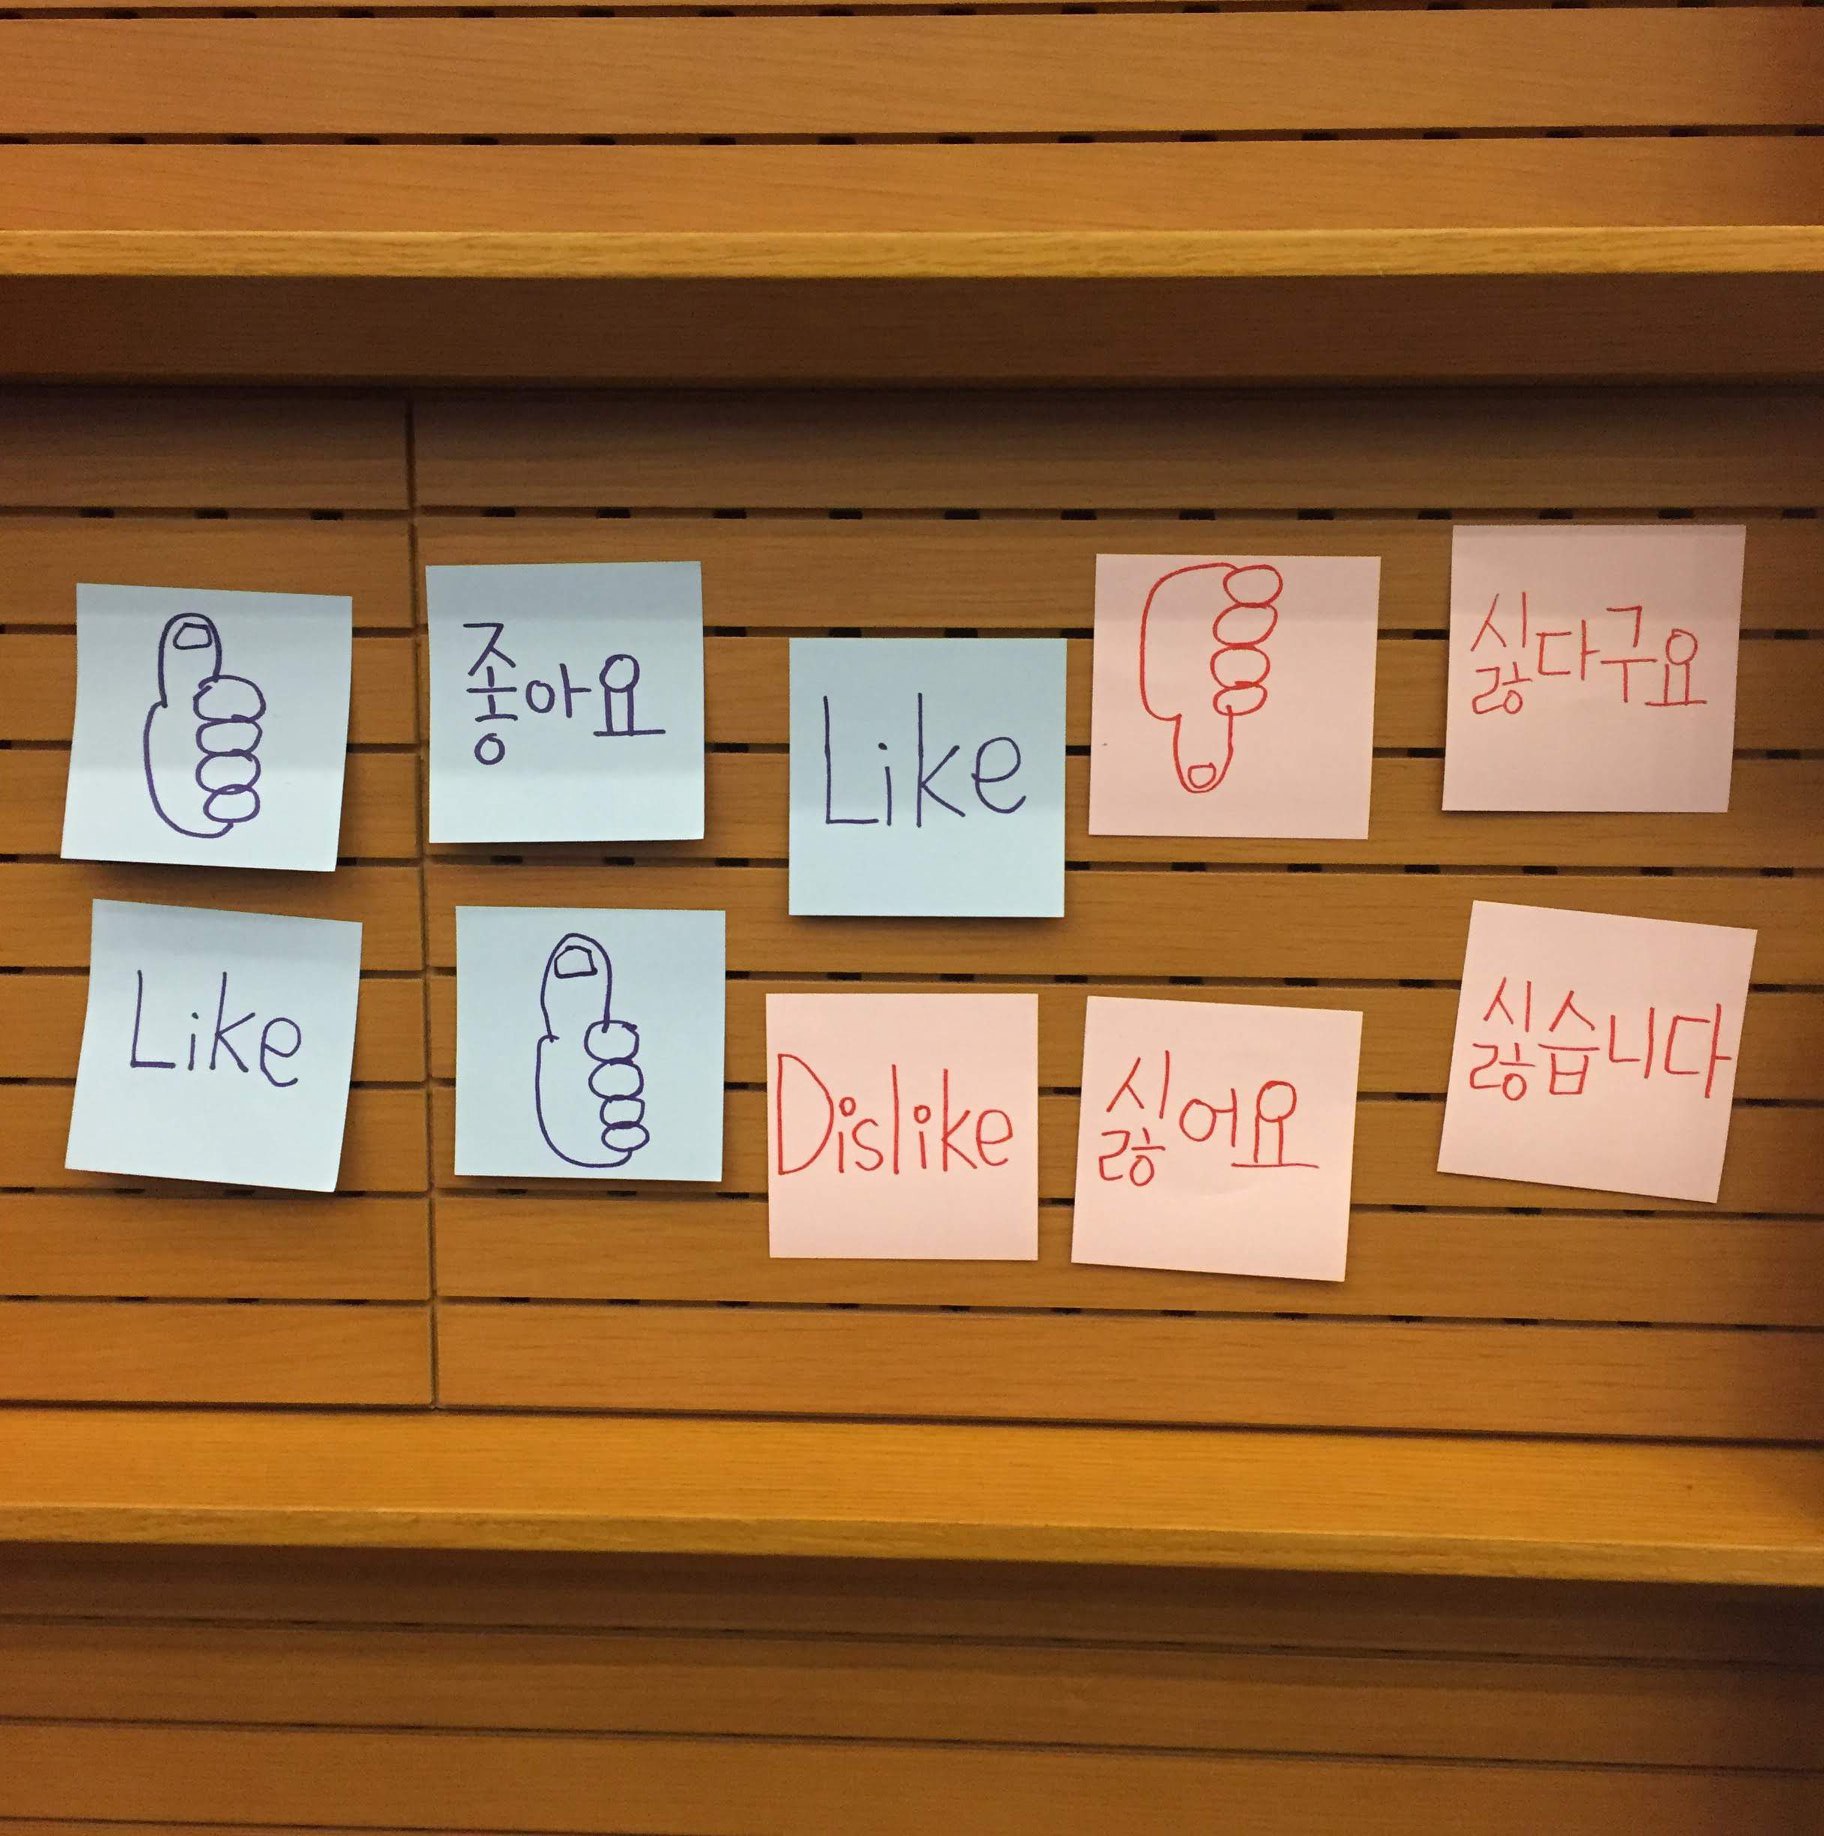 좋아요
Like
싫다구요
Like
Dislike
싫어요
싫습니다